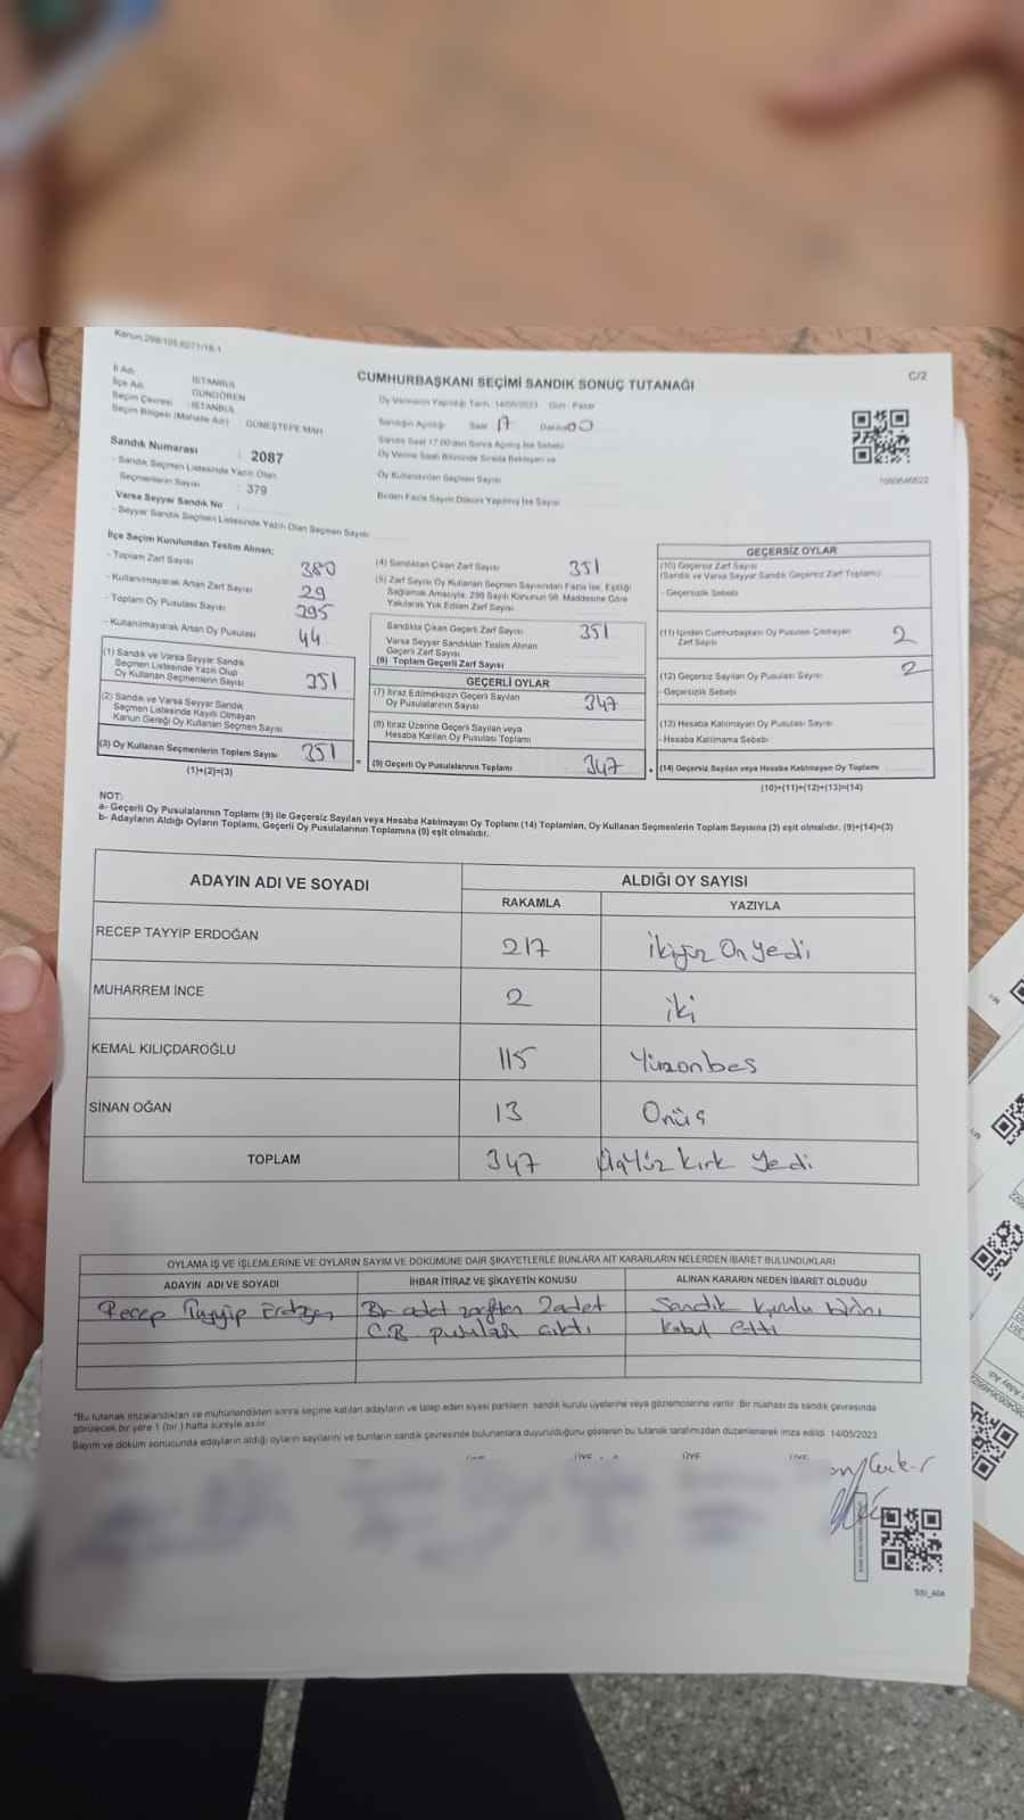 Kanun:298/105,6271/18-1
C/2
CUMHURBAŞKANI SEÇİMİ SANDIK SONUÇ TUTANAĞI
İl Adı : İSTANBUL
İlçe Adı : GÜNGÖREN
Seçim Çevresi : İSTANBUL
Seçim Bölgesi (Mahalle Adı) : GÜNEŞTEPE MAH.
Oy Vermenin Yapıldığı Tarih: 14/05/2023 Gün: Pazar
Sandığın Açılışı Saat 17 Dakika 00
Sandık Saat 17.00'den Sonra Açılmış İse Sebebi
Oy Verme Saati Bitiminde Sırada Bekleyen ve
Oy Kullandırılan Seçmen Sayısı
Birden Fazla Sayım Döküm Yapılmış İse Sayısı
Sandık Numarası : 2087
- Sandık Seçmen Listesinde Yazılı Olan
Seçmenlerin Sayısı : 379
Varsa Seyyar Sandık No :
- Seyyar Sandık Seçmen Listesinde Yazılı Olan Seçmen Sayısı:
İlçe Seçim Kurulundan Teslim Alınan;
- Toplam Zarf Sayısı 380
- Kullanılmayarak Artan Zarf Sayısı 29
- Toplam Oy Pusulası Sayısı 395
- Kullanılmayarak Artan Oy Pusulası 44
(1) Sandık ve Varsa Seyyar Sandık
Seçmen Listesinde Yazılı Olup
Oy Kullanan Seçmenlerin Sayısı 351
(2) Sandık ve Varsa Seyyar Sandık
Seçmen Listesinde Kayıtlı Olmayan
Kanun Gereği Oy Kullanan Seçmen Sayısı
(3) Oy Kullanan Seçmenlerin Toplam Sayısı 351
(1)+(2)=(3)
(4) Sandıktan Çıkan Zarf Sayısı 351
(5) Zarf Sayısı Oy Kullanan Seçmen Sayısından Fazla İse, Eşitliği
Sağlamak Amacıyla, 298 Sayılı Kanunun 98. Maddesine Göre
Yakılarak Yok Edilen Zarf Sayısı
Sandıkta Çıkan Geçerli Zarf Sayısı 351
Varsa Seyyar Sandıktan Teslim Alınan
Geçerli Zarf Sayısı
(6) Toplam Geçerli Zarf Sayısı
GEÇERLİ OYLAR
(7) İtiraz Edilmeksizin Geçerli Sayılan
Oy Pusulalarının Sayısı 347
(8) İtiraz Üzerine Geçerli Sayılan veya
Hesaba Katılan Oy Pusulası Toplamı
(9) Geçerli Oy Pusulalarının Toplamı 347
GEÇERSİZ OYLAR
(10) Geçersiz Zarf Sayısı
(Sandık ve Varsa Seyyar Sandık Geçersiz Zarf Toplamı)
- Geçersizlik Sebebi
(11) İçinden Cumhurbaşkanı Oy Pusulası Çıkmayan
Zarf Sayısı 2
(12) Geçersiz Sayılan Oy Pusulası Sayısı 2
- Geçersizlik Sebebi
(13) Hesaba Katılmayan Oy Pusulası Sayısı
- Hesaba Katılmama Sebebi
(14) Geçersiz Sayılan veya Hesaba Katılmayan Oy Toplamı
(10)+(11)+(12)+(13)=(14)
NOT:
a- Geçerli Oy Pusulalarının Toplamı (9) ile Geçersiz Sayılan veya Hesaba Katılmayan Oy Toplamı (14) Toplamları, Oy Kullanan Seçmenlerin Toplam Sayısına (3) eşit olmalıdır. (9)+(14)=(3)
b- Adayların Aldığı Oyların Toplamı, Geçerli Oy Pusulalarının Toplamına (9) eşit olmalıdır.
ADAYIN ADI VE SOYADI ALDIĞI OY SAYISI
RAKAMLA YAZIYLA
RECEP TAYYİP ERDOĞAN 217 ikiyüz On yedi
MUHARREM İNCE 2 iki
KEMAL KILIÇDAROĞLU 115 Yüzonbeş
SİNAN OĞAN 13 Onüç
TOPLAM 347 Üçyüz kırk yedi
OYLAMA İŞ VE İŞLEMLERİNE VE OYLARIN SAYIM VE DÖKÜMÜNE DAİR ŞİKAYETLERLE BUNLARA AİT KARARLARIN NELERDEN İBARET BULUNDUKLARI
ADAYIN ADI VE SOYADI İHBAR İTİRAZ VE ŞİKAYETİN KONUSU ALINAN KARARIN NEDEN İBARET OLDUĞU
Recep Tayyip Erdoğan Bir adet zarftan 2 adet Sandık kurulu birini
C.B pusulası çıktı kabul etti
*Bu tutanak imzalandıktan ve mühürlendikten sonra seçime katılan adayların ve talep eden siyasi partilerin sandık kurulu üyelerine veya gözlemcilerine verilir. Bir nüshası da sandık çevresinde
görülecek bir yere 1 (bir) hafta süreyle asılır.
Sayım ve döküm sonucunda adayların aldığı oyların sayılarını ve bunların sandık çevresinde bulunanlara duyurulduğunu gösteren bu tutanak tarafımızdan düzenlenerek imza edildi. 14/05/2023